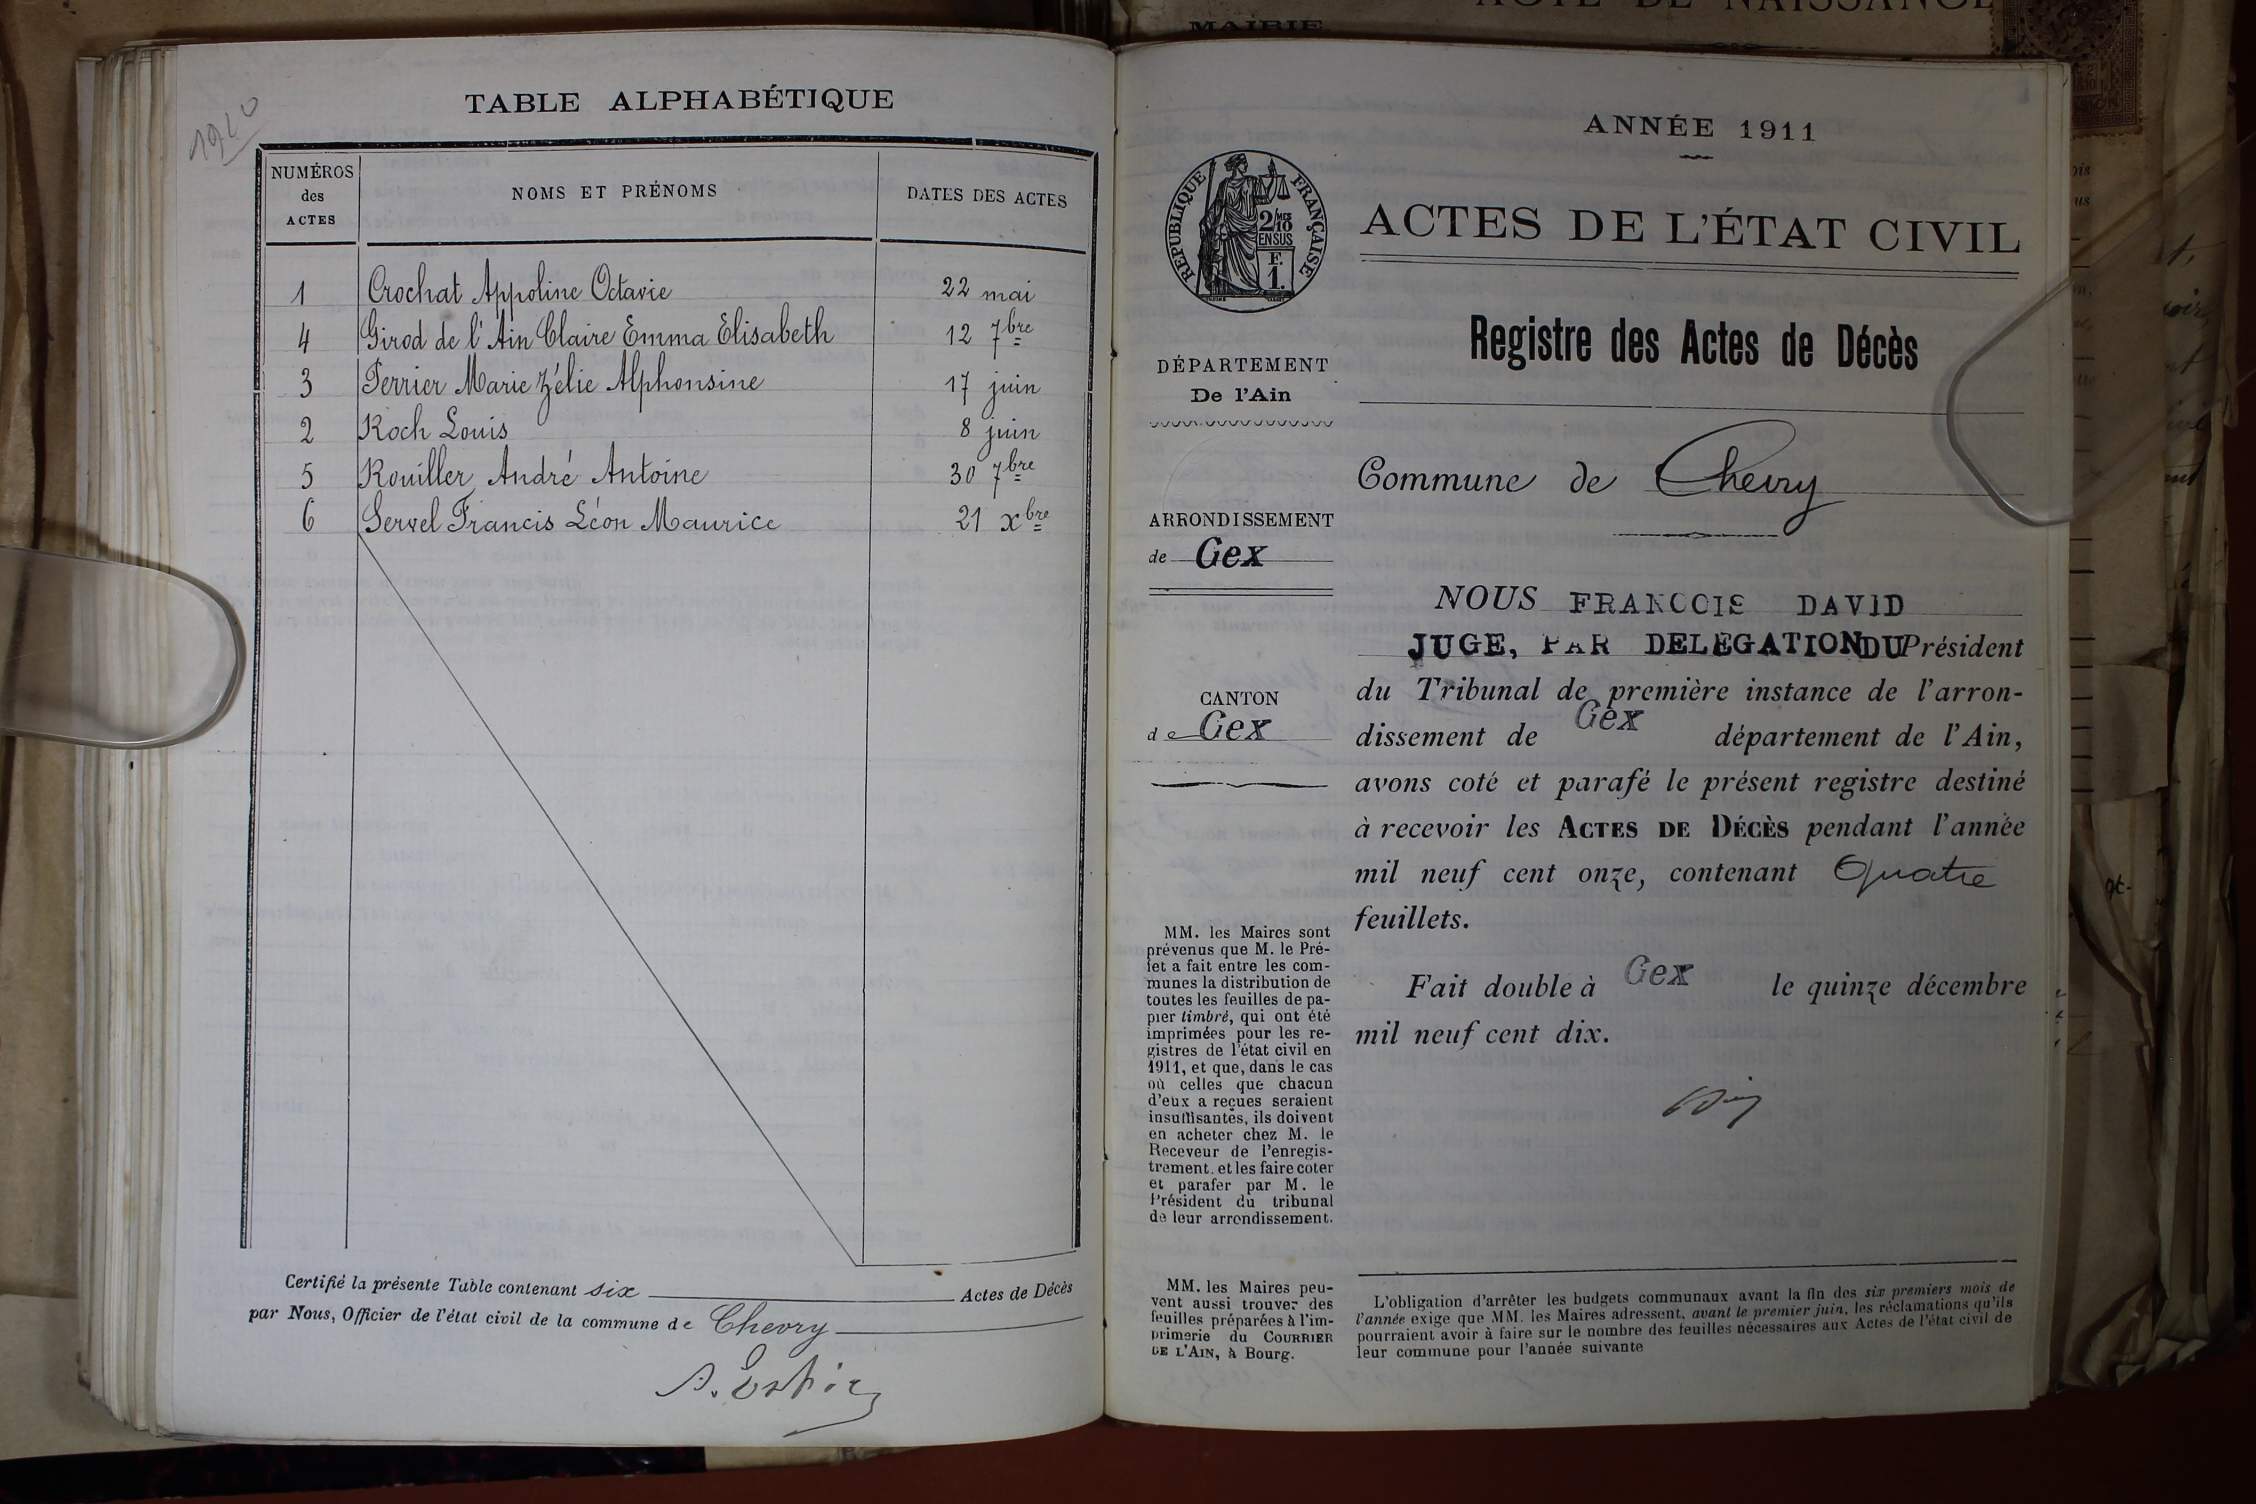 MAIRIE
ACTE DE NAISSANCE
1910
TABLE ALPHABÉTIQUE
NUMÉROS des ACTES
NOMS ET PRÉNOMS
DATES DES ACTES
1 Crochat Appoline Octavie 22 mai
4 Girod de l'Ain Claire Emma Elisabeth 12 7bre
3 Perrier Marie Zélie Alphonsine 17 juin
2 Roch Louis 8 juin
5 Rouiller André Antoine 30 7bre
6 Servel Francis Léon Maurice 21 xbre
Certifié la présente Table contenant six Actes de Décès
par Nous, Officier de l'état civil de la commune de Chevry
ANNÉE 1911
RÉPUBLIQUE FRANÇAISE
2/10 MES
EN SUS
F.
1.
ACTES DE L'ÉTAT CIVIL
Registre des Actes de Décès
DÉPARTEMENT
De l'Ain
Commune de Chevry
ARRONDISSEMENT
de Gex
CANTON
de Gex
NOUS FRANCOIS DAVID
JUGE, PAR DELEGATION DU Président
du Tribunal de première instance de l'arron-
dissement de Gex département de l'Ain,
avons coté et parafé le présent registre destiné
à recevoir les ACTES DE DÉCÈS pendant l'année
mil neuf cent onze, contenant Quatre
feuillets.
Fait double à Gex le quinze décembre
mil neuf cent dix.
MM. les Maires sont
prévenus que M. le Pré-
fet a fait entre les com-
munes la distribution de
toutes les feuilles de pa-
pier timbré, qui ont été
imprimées pour les re-
gistres de l'état civil en
1911, et que, dans le cas
où celles que chacun
d'eux a reçues seraient
insuffisantes, ils doivent
en acheter chez M. le
Receveur de l'enregis-
trement. et les faire coter
et parafer par M. le
Président du tribunal
de leur arrondissement.
MM. les Maires peu-
vent aussi trouver des
feuilles préparées à l'im-
primerie du COURRIER
DE L'AIN, à Bourg.
L'obligation d'arrêter les budgets communaux avant la fin des six premiers mois de
l'année exige que MM. les Maires adressent, avant le premier juin, les réclamations qu'ils
pourraient avoir à faire sur le nombre des feuilles nécessaires aux Actes de l'état civil de
leur commune pour l'année suivante